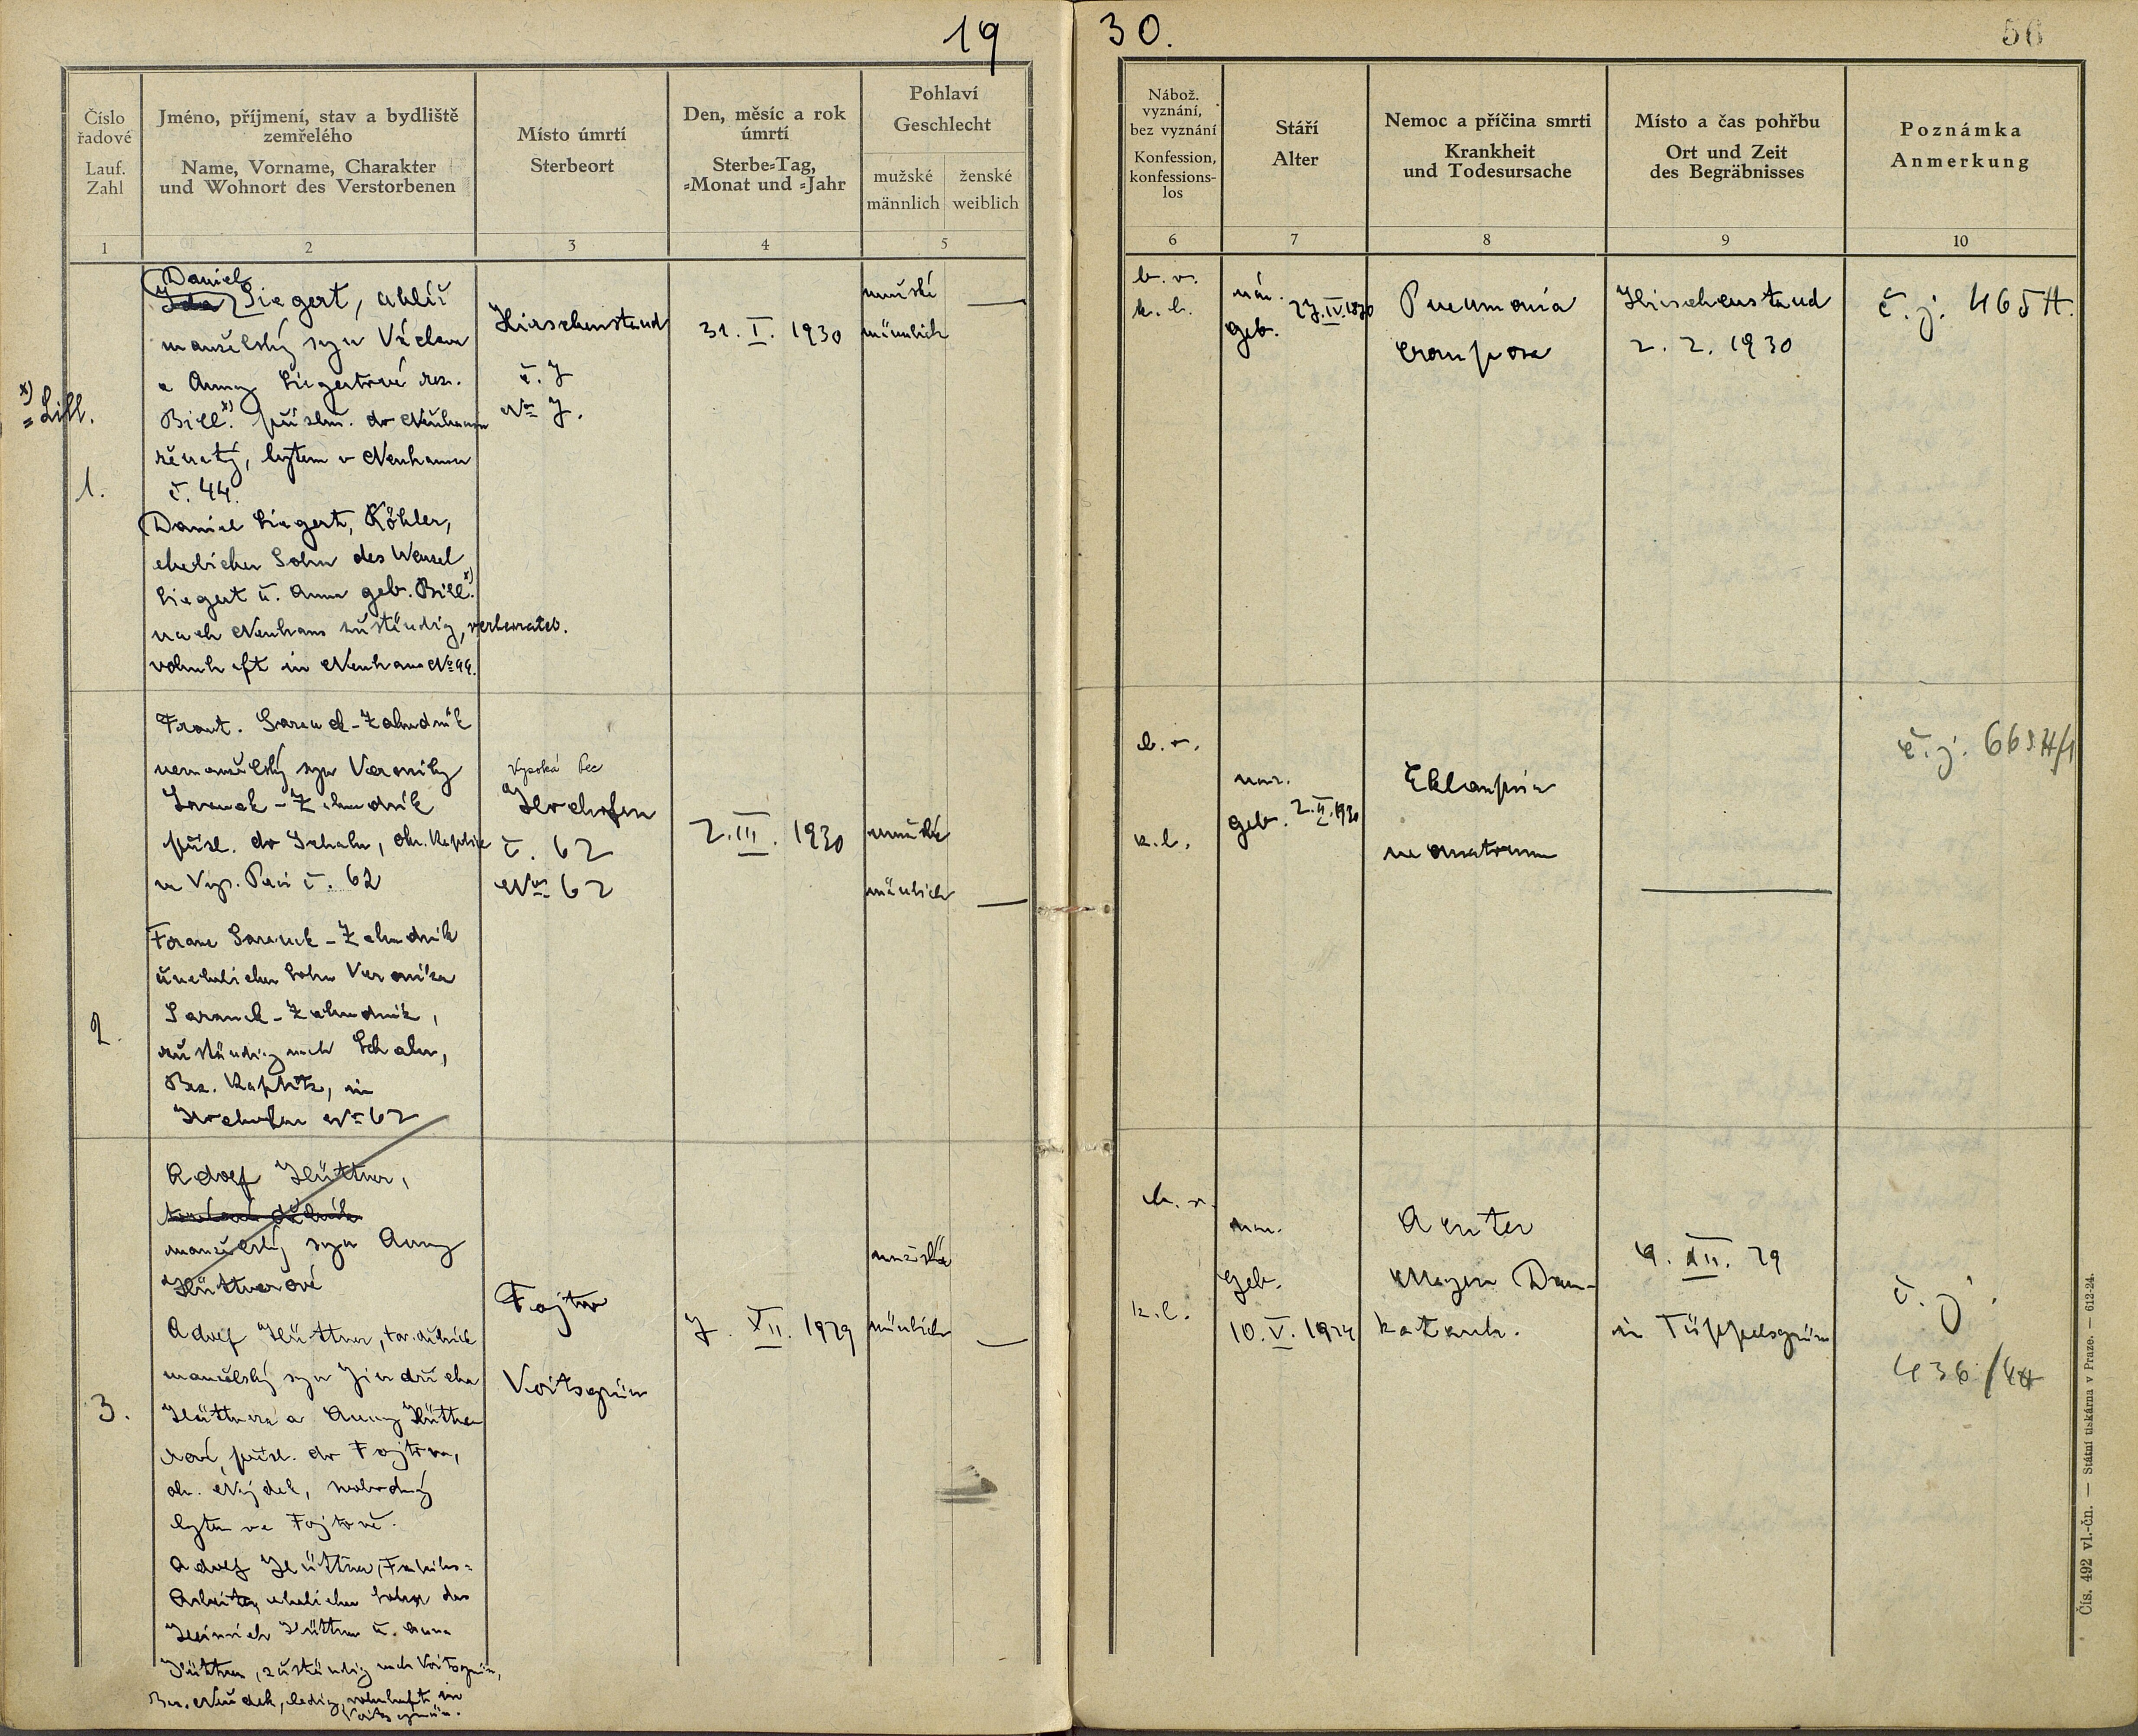 19
30.
56
Číslo
řadové
Lauf.
Zahl
Jméno, příjmení, stav a bydliště
zemřelého
Name, Vorname, Charakter
und Wohnort des Verstorbenen
Místo úmrtí
Sterbeort
Den, měsíc a rok
úmrtí
Sterbe-Tag,
-Monat und -Jahr
Pohlaví
Geschlecht
mužské
männlich
ženské
weiblich
Nábož.
vyznání,
bez vyznání
Konfession,
konfessions-
los
Stáří
Alter
Nemoc a příčina smrti
Krankheit
und Todesursache
Místo a čas pohřbu
Ort und Zeit
des Begräbnisses
Poznámka
Anmerkung
1
2
3
4
5
6
7
8
9
10
x)
= Lill.
1.
Daniel
Ida Siegert, uhlíř
manželský syn Václava
a Anny Siegertové roz.
Bill.x) přísluš. do Neuhausu
ženatý, bytem v Neuhausu
č. 44.
Daniel Siegert, Köhler,
ehelicher Sohn des Wenzel
Siegert u. Anna geb. Bill.x)
nach Neuhaus zuständig, verheirateb.
wohnhaft in Neuhaus No 44.
Hirschenstand
č. 7
No 7.
31. I. 1930
mužské
männlich
b. v.
k. l.
nar. 27. IV. 1870
geb.
Pneumonia
crouposa
Hirschenstand
2. 2. 1930
č. j. 465 H.
2.
Frant. Zahradník
nemanželský syn Veroniky
Zahradník
přísl. do okr. Kaplice
ve Vys. Peci č. 62
Franz Zahradník
unehelicher Sohn Veronika
Zahradník,
zuständig nach
Bez. Kaplitz, in
Hochofen No 62
Vysoká Pec
Hochofen
č. 62
No 62
2. III. 1930
mužské
männlich
b. v.
k. l.
nar.
geb. 2. II. 1930
Eklampsia
neonatorum
3.
Adolf Hüttner,
manželský syn Anny
Hüttnerové
Adolf Hüttner, tov. dělník
manželský syn Jindřicha
Hüttnera a Anny Hüttne
rové, přísl. do Fojtova,
okr. Nejdek, svobodný
bytem ve Fojtově.
Adolf Hüttner, Fabriks-
Arbeiter, ehelicher Sohn des
Heinrich Hüttner u. Anna
Hüttner, zuständig nach Voitsgrün,
Bez. Neudek, ledig, wohnhaft in
Voitsgrün.
Fojtov
Voitsgrün
7. XII. 1929
mužské
männlich
b. v.
k. l.
nar.
geb.
10. V. 1924
Acuter
Magen Darm-
katarrh.
9. XII. 29
in Tüppelsgrün
č. j.
Čís. 492 vl.-čn. — Státní tiskárna v Praze. — 612-24.